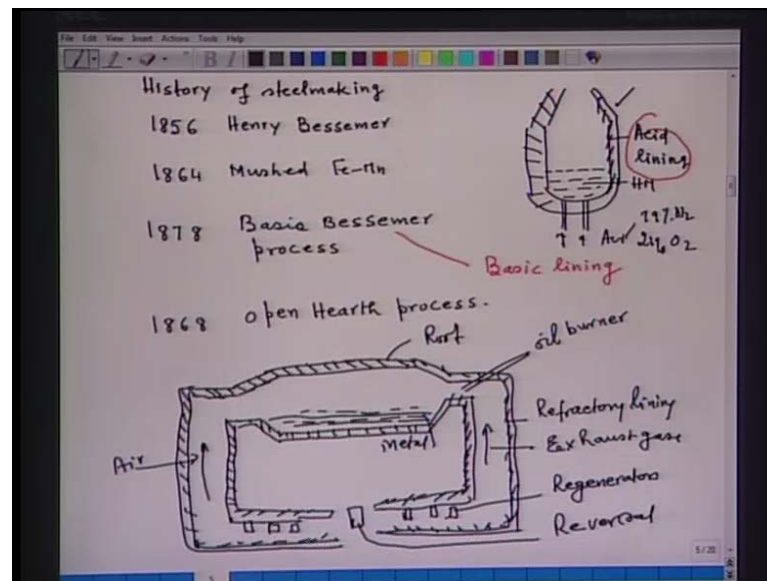 File Edit View Insert Actions Tools Help
History of steelmaking
1856 Henry Bessemer
1864 Mushed Fe-Mn
1878 Basic Bessemer
process
Basic lining
1868 Open Hearth process.
Acid
lining
HM
Air 79% N2
21% O2
Roof
oil burner
Refractory lining
Metal
Exhaust gase
Air
Regenerators
Reversal
5/20